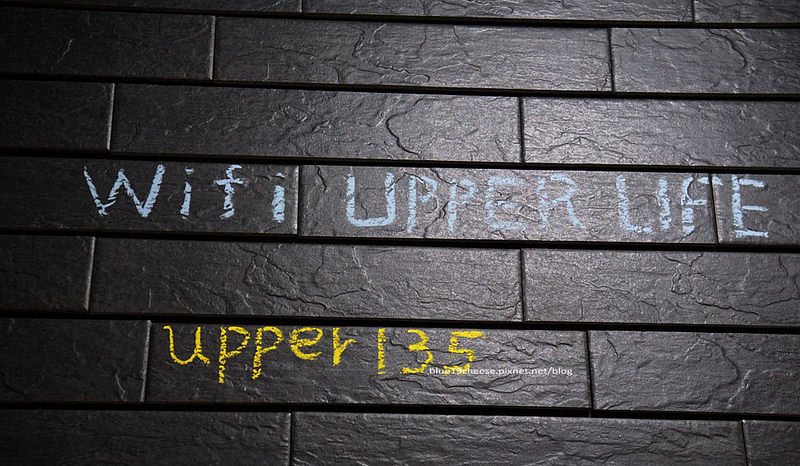 Wifi UPPER LIFE
upper135
blue19cheese.pixnet.net/blog